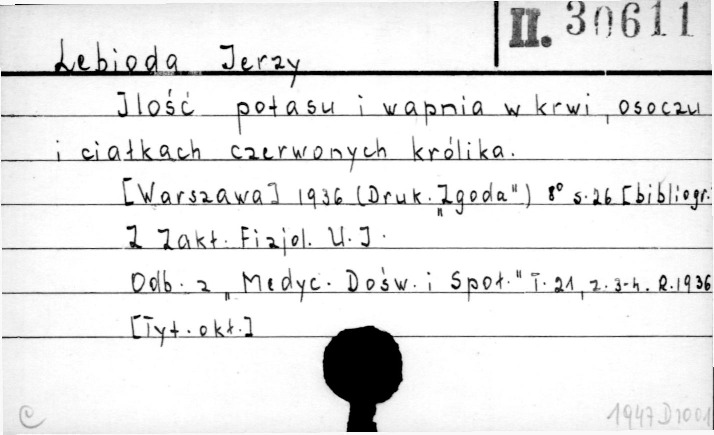 II. 30611
Lebioda Jerzy
Ilość potasu i wapnia w krwi, osoczu
i ciałkach czerwonych królika.
[Warszawa] 1936 (Druk. „Zgoda") 8° s. 26 [bibliogr.
Z Zakł. Fizjol. U. J.
Odb. z „Medyc. Dośw. i Społ." T. 21, z. 3-4. R. 1936
[Tyt. okł.]
C 1947 D 1001